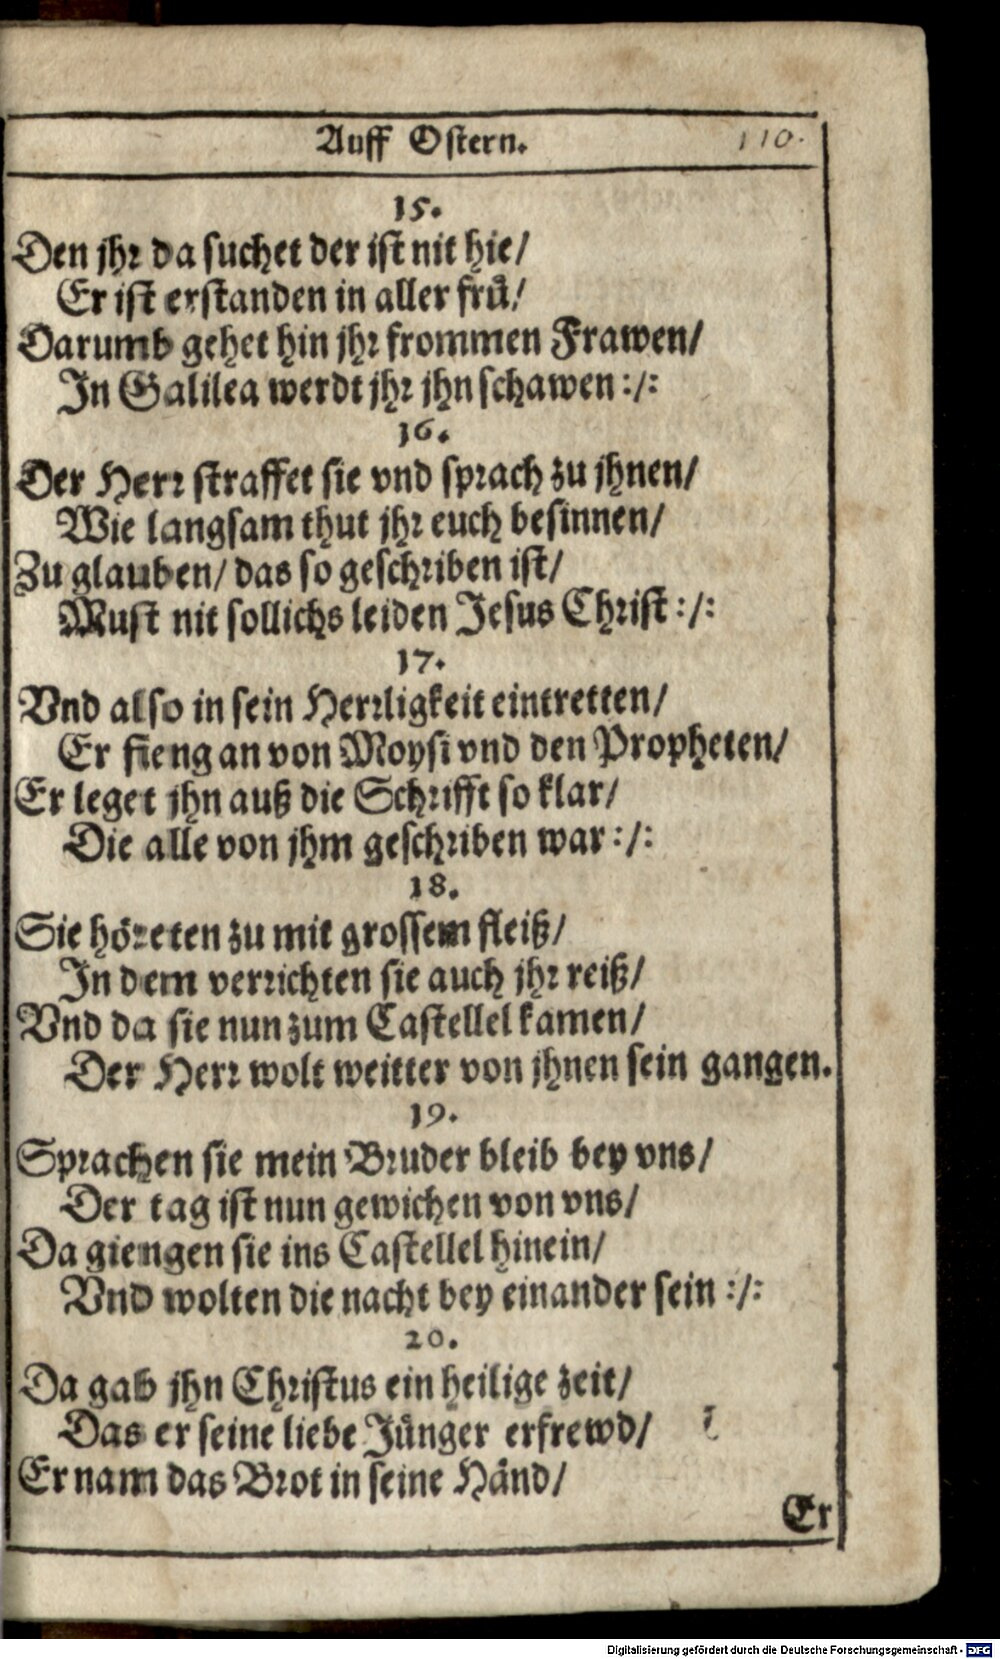 Auff Ostern.
110.
15.
Den jhr da suchet der ist nit hie/
Er ist erstanden in aller frů/
Darumb gehet hin jhr frommen Frawen/
In Galilea werdt jhr jhn schawen :/:
16.
Der Herr straffet sie vnd sprach zu jhnen/
Wie langsam thut jhr euch besinnen/
Zu glauben/ das so geschriben ist/
Must nit sollichs leiden Jesus Christ :/:
17.
Vnd also in sein Herrligkeit eintretten/
Er fieng an von Moysi vnd den Propheten/
Er leget jhn auß die Schrifft so klar/
Die alle von jhm geschriben war :/:
18.
Sie höreten zu mit grossem fleiß/
In dem verrichten sie auch jhr reiß/
Vnd da sie nun zum Castellel kamen/
Der Herr wolt weitter von jhnen sein gangen.
19.
Sprachen sie mein Bruder bleib bey vns/
Der tag ist nun gewichen von vns/
Da giengen sie ins Castellel hinein/
Vnd wolten die nacht bey einander sein :/:
20.
Da gab jhn Christus ein heilige zeit/
Das er seine liebe Jünger erfrewd/
Er nam das Brot in seine Händ/
Er
Digitalisierung gefördert durch die Deutsche Forschungsgemeinschaft - DFG